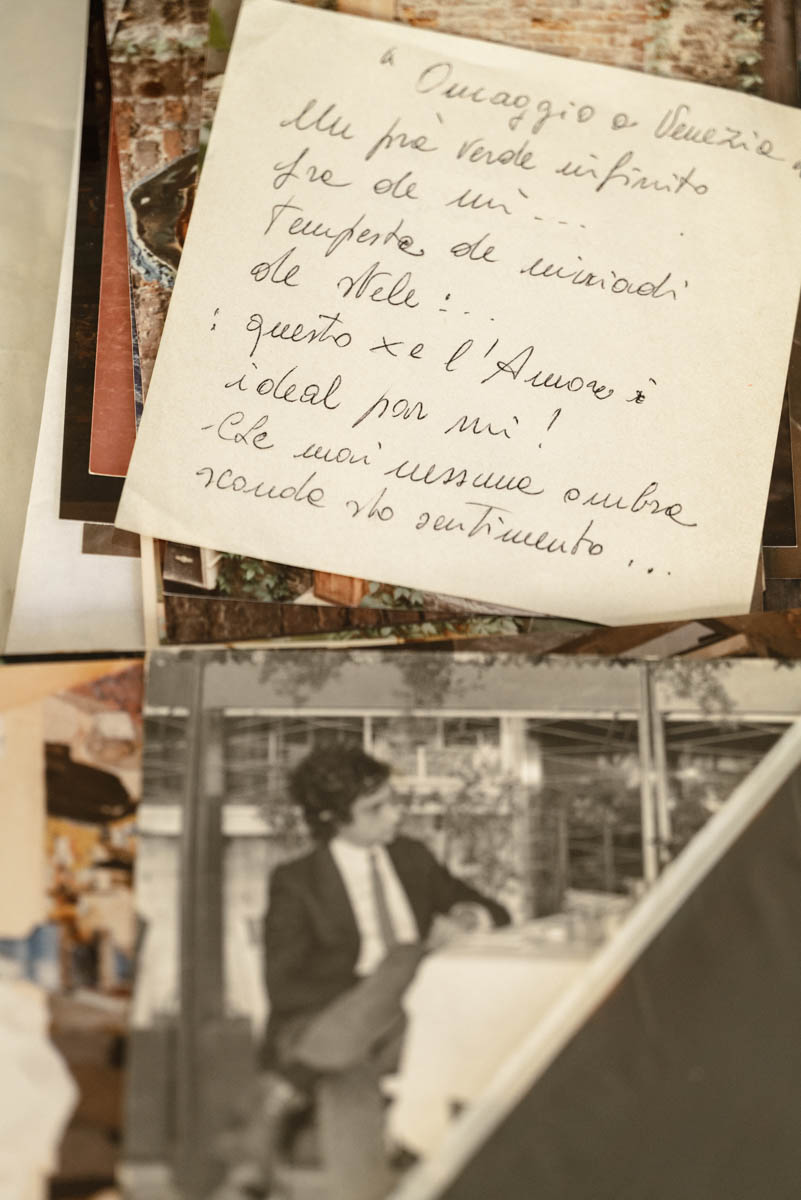 " Omaggio a Venezia "
Un prà verde infinito
fra de mi...
Tempesta de miriadi
de stele :...
: questo xe l'Amore
ideal par mi !
- Che mai nissuna ombra
sconda sto sentimento ...